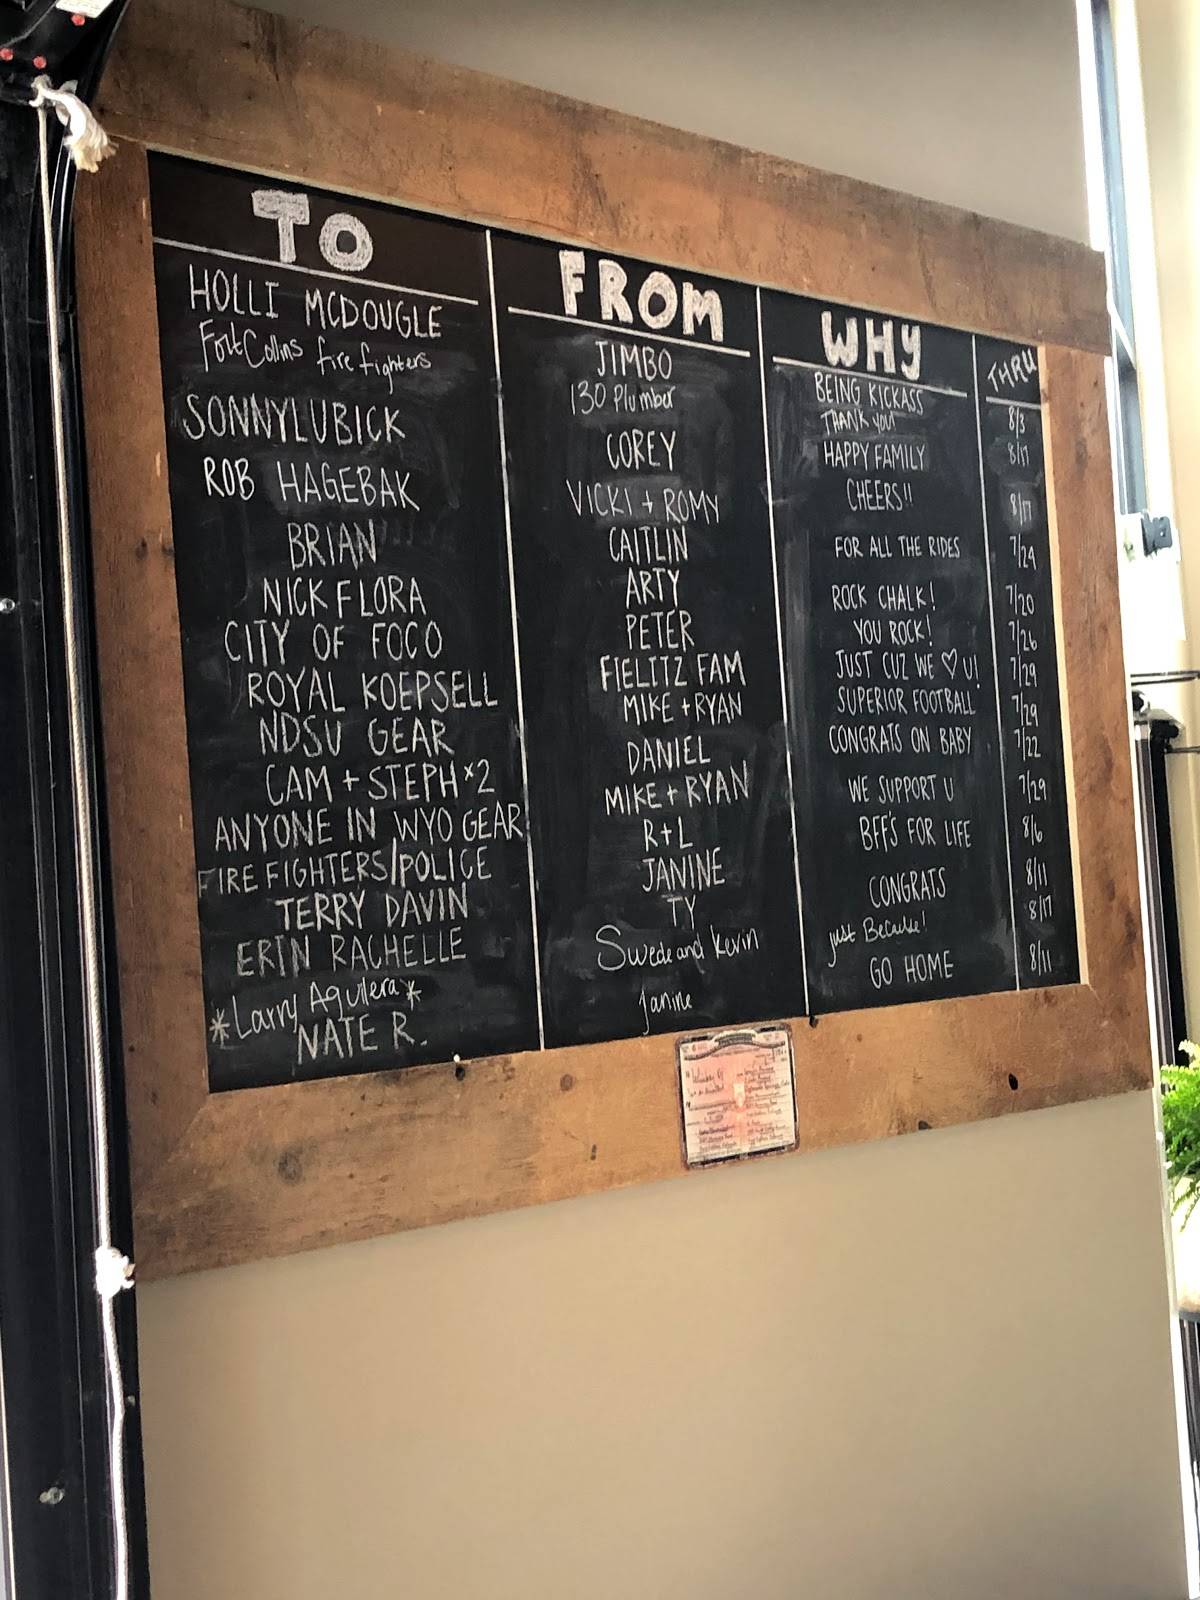 TO
HOLLI MCDOUGLE
Fort Collins fire fighters
SONNYLUBICK
ROB HAGEBAK
BRIAN
NICK FLORA
CITY OF FOCO
ROYAL KOEPSELL
NDSU GEAR
CAM + STEPH x2
ANYONE IN WYO GEAR
FIRE FIGHTERS/POLICE
TERRY DAVIN
ERIN RACHELLE
*Larry Aguilera*
NATE R.
FROM
JIMBO
130 Plumber
COREY
VICKI + ROMY
CAITLIN
ARTY
PETER
FIELITZ FAM
MIKE + RYAN
DANIEL
MIKE + RYAN
R+L
JANINE
TY
Swede and Kevin
Janine
WHY
BEING KICKASS
THANK YOU!
HAPPY FAMILY
CHEERS!!
FOR ALL THE RIDES
ROCK CHALK!
YOU ROCK!
JUST CUZ WE ♡ U!
SUPERIOR FOOTBALL
CONGRATS ON BABY
WE SUPPORT U
BFF'S FOR LIFE
CONGRATS
just Because!
GO HOME
THRU
8/3
8/17
8/17
7/24
7/20
7/26
7/29
7/29
7/22
7/29
8/6
8/11
8/17
8/11